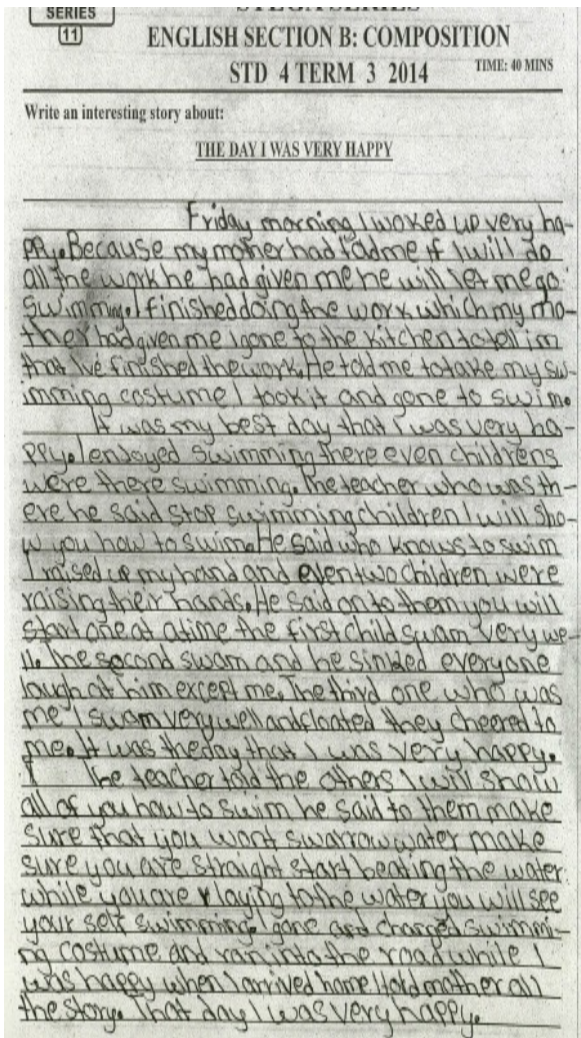 SERIES
11
ENGLISH SECTION B: COMPOSITION
STD 4 TERM 3 2014 TIME: 40 MINS
Write an interesting story about:
THE DAY I WAS VERY HAPPY
Friday morning I woked up very ha-
ppy. Because my mother had told me if I will do
all the work he had given me he will let me go
swimming. I finished doing the work which my mo-
ther had given me I gone to the kitchen to tell im
that I've finished the work. He told me to take my sw-
imming costume I took it and gone to swim.
It was my best day that I was very ha-
ppy. I enjoyed swimming there even childrens
were there swimming. The teacher who was th-
ere he said stop swimming children I will sho-
w you how to swim. He said who knows to swim
I raised up my hand and even two children were
raising their hands. He said on to them you will
start one at a time the first child swam very we-
ll. The second swam and he sinked everyone
laugh at him except me. The third one who was
me I swam very well and floated they cheered to
me. It was the day that I was very happy.
The teacher told the others I will show
all of you how to swim he said to them make
sure that you wont swarrow water make
sure you are straight start beating the water
while you are laying to the water you will see
your self swimming. I gone and changed swimmi-
ng costume and ran into the road while I
was happy when I arrived home I told mother all
the story. That day I was very happy.